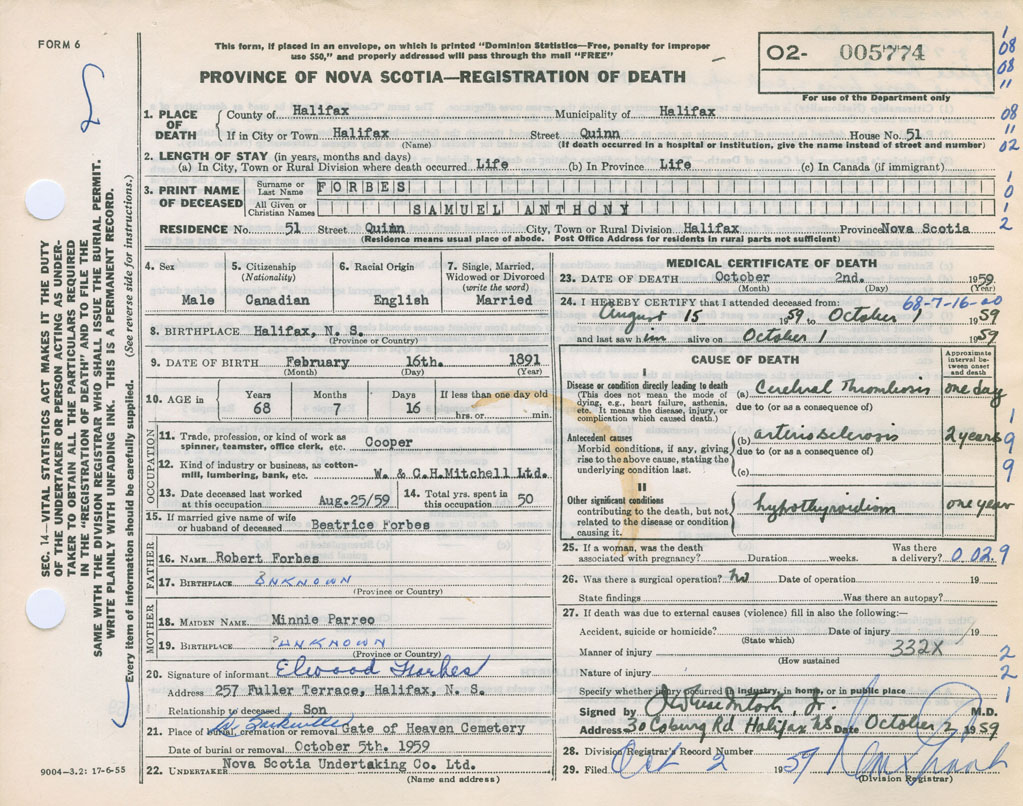 FORM 6
This form, if placed in an envelope, on which is printed "Dominion Statistics—Free, penalty for improper
use $50," and properly addressed will pass through the mail "FREE"
PROVINCE OF NOVA SCOTIA—REGISTRATION OF DEATH
O2- 005774
For use of the Department only
1
08
08
11
08
11
02
1
0
1
2
SEC. 14—VITAL STATISTICS ACT MAKES IT THE DUTY
OF THE UNDERTAKER OR PERSON ACTING AS UNDER-
TAKER TO OBTAIN ALL THE PARTICULARS REQUIRED
IN THE "REGISTRATION OF DEATH" AND TO FILE THE
SAME WITH THE DIVISION REGISTRAR WHO SHALL ISSUE THE BURIAL PERMIT.
WRITE PLAINLY WITH UNFADING INK. THIS IS A PERMANENT RECORD.
Every item of information should be carefully supplied. (See reverse side for instructions.)
1. PLACE OF DEATH
County of Halifax Municipality of Halifax
If in City or Town Halifax Street Quinn House No. 51
(Name) (If death occurred in a hospital or institution, give the name instead of street and number)
2. LENGTH OF STAY (in years, months and days)
(a) In City, Town or Rural Division where death occurred Life (b) In Province Life (c) In Canada (if immigrant)
3. PRINT NAME OF DECEASED
Surname or Last Name FORBES
All Given or Christian Names SAMUEL ANTHONY
RESIDENCE No. 51 Street Quinn City, Town or Rural Division Halifax Province Nova Scotia
(Residence means usual place of abode. Post Office Address for residents in rural parts not sufficient)
4. Sex Male
5. Citizenship (Nationality) Canadian
6. Racial Origin English
7. Single, Married, Widowed or Divorced (write the word) Married
8. BIRTHPLACE Halifax, N. S.
(Province or Country)
9. DATE OF BIRTH February 16th. 1891
(Month) (Day) (Year)
10. AGE in Years Months Days If less than one day old
68 7 16 hrs. or min.
OCCUPATION
11. Trade, profession, or kind of work as
spinner, teamster, office clerk, etc. Cooper
12. Kind of industry or business, as cotton-
mill, lumbering, bank, etc. W. & C.H.Mitchell Ltd.
13. Date deceased last worked
at this occupation Aug.25/59
14. Total yrs. spent in
this occupation 50
15. If married give name of wife
or husband of deceased Beatrice Forbes
FATHER
16. NAME Robert Forbes
17. BIRTHPLACE UNKNOWN
(Province or Country)
MOTHER
18. MAIDEN NAME Minnie Parreo
19. BIRTHPLACE UNKNOWN
(Province or Country)
20. Signature of informant Elwood Forbes
Address 257 Fuller Terrace, Halifax, N. S.
Relationship to deceased Son
21. Place of burial, cremation or removal Gate of Heaven Cemetery
Date of burial or removal October 5th. 1959
22. UNDERTAKER Nova Scotia Undertaking Co. Ltd.
(Name and address)
9004—3.2: 17-6-55
MEDICAL CERTIFICATE OF DEATH
23. DATE OF DEATH October 2nd. 1959
(Month) (Day) (Year)
24. I HEREBY CERTIFY that I attended deceased from: 68-7-16-00
August 15 1959 to October 1 1959
and last saw him alive on October 1 1959
CAUSE OF DEATH
Approximate
interval be-
tween onset
and death
I
Disease or condition directly leading to death
(This does not mean the mode of
dying, e.g., heart failure, asthenia,
etc. It means the disease, injury, or
complication which caused death.)
(a) Cerebral Thrombosis one day
due to (or as a consequence of)
Antecedent causes
Morbid conditions, if any, giving
rise to the above cause, stating the
underlying condition last.
(b) arteriosclerosis 2 years
due to (or as a consequence of)
(c)
1
9
9
II
Other significant conditions
contributing to the death, but not
related to the disease or condition
causing it.
hypothyroidism one year
25. If a woman, was the death Was there
associated with pregnancy? Duration weeks. a delivery? 0.029
26. Was there a surgical operation? no Date of operation 19
State findings Was there an autopsy?
27. If death was due to external causes (violence) fill in also the following:—
Accident, suicide or homicide? Date of injury 19
(State which)
Manner of injury 332X 2
(How sustained)
Nature of injury 2
Specify whether injury occurred in industry, in home, or in public place 1
Signed by Jr. M.D.
Address 30 Coburg Rd Halifax NS Date October 2 1959
28. Division Registrar's Record Number
29. Filed Oct 2 1959
(Division Registrar)